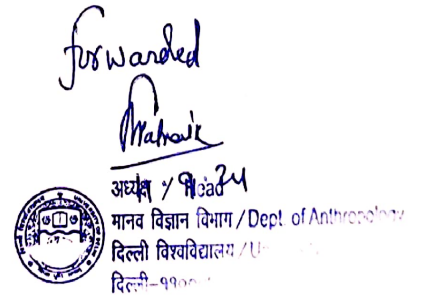 forwarded
अध्यक्ष / Head
मानव विज्ञान विभाग / Dept. of Anthropology
दिल्ली विश्वविद्यालय /
दिल्ली-११००